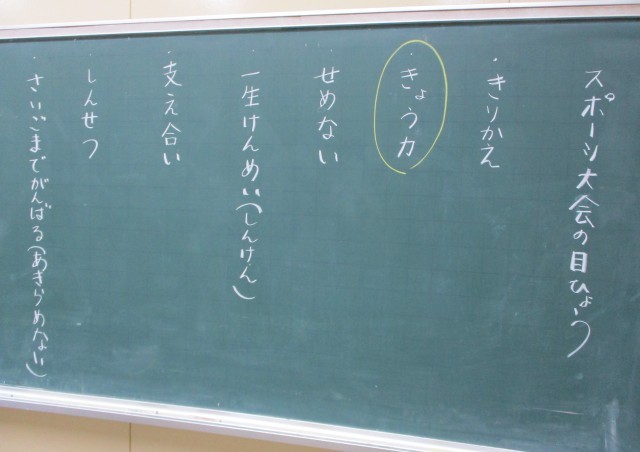 スポーツ大会の目ひょう
・きりかえ
・きょう力
・せめない
・一生けんめい(しんけん)
・支え合い
・しんせつ
・さいごまでがんばる(あきらめない)